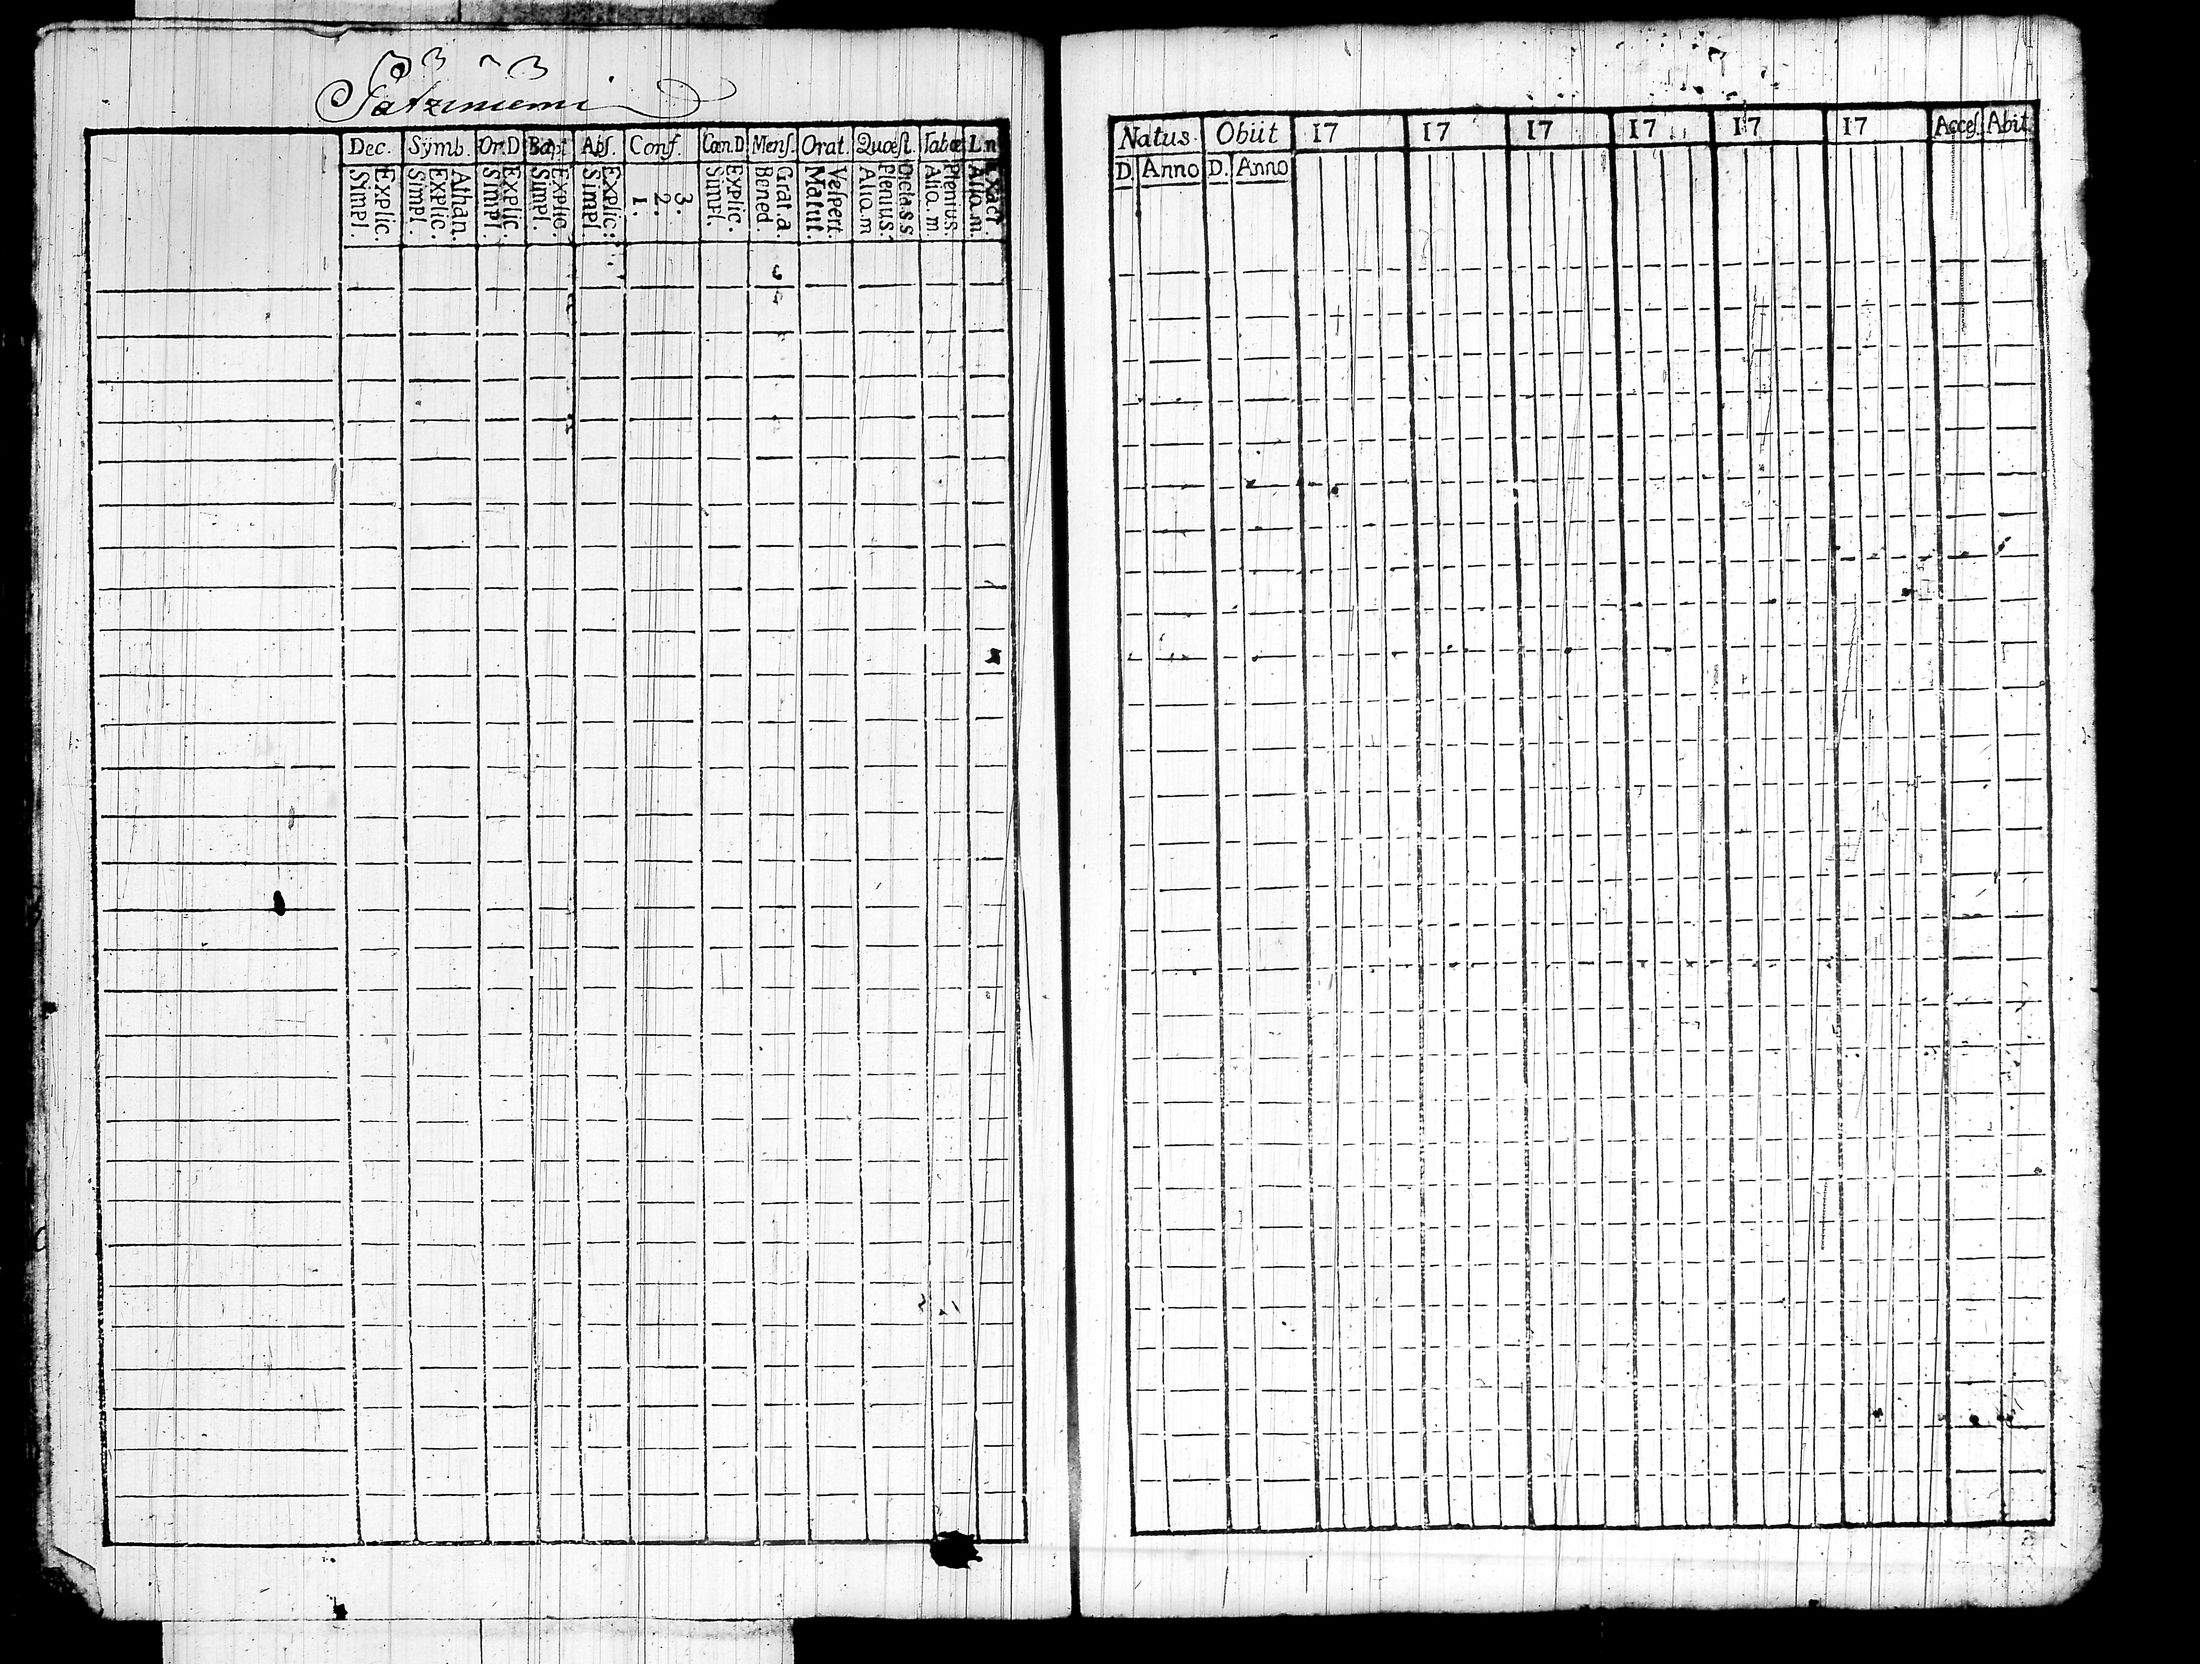 Patzniemi
Dec. Symb. Or.D Bapt Abs. Conf. Cœn.D Menſ. Orat. Quæſt. Tabæ L.n
Explic. Simpl.
Athan. Explic. Simpl.
Explic. Simpl.
Explic. Simpl.
Explic. Simpl.
3. 2. 1.
Explic. Simpl.
Grat.a. Bened.
Veſpert. Matut.
Dicta.s.s. Plenius. Alia.m
Plenius. Alia.m.
Exact. Alia.m.
Natus Obiit 17 17 17 17 17 17 Acceſ. Abit.
D. Anno D. Anno